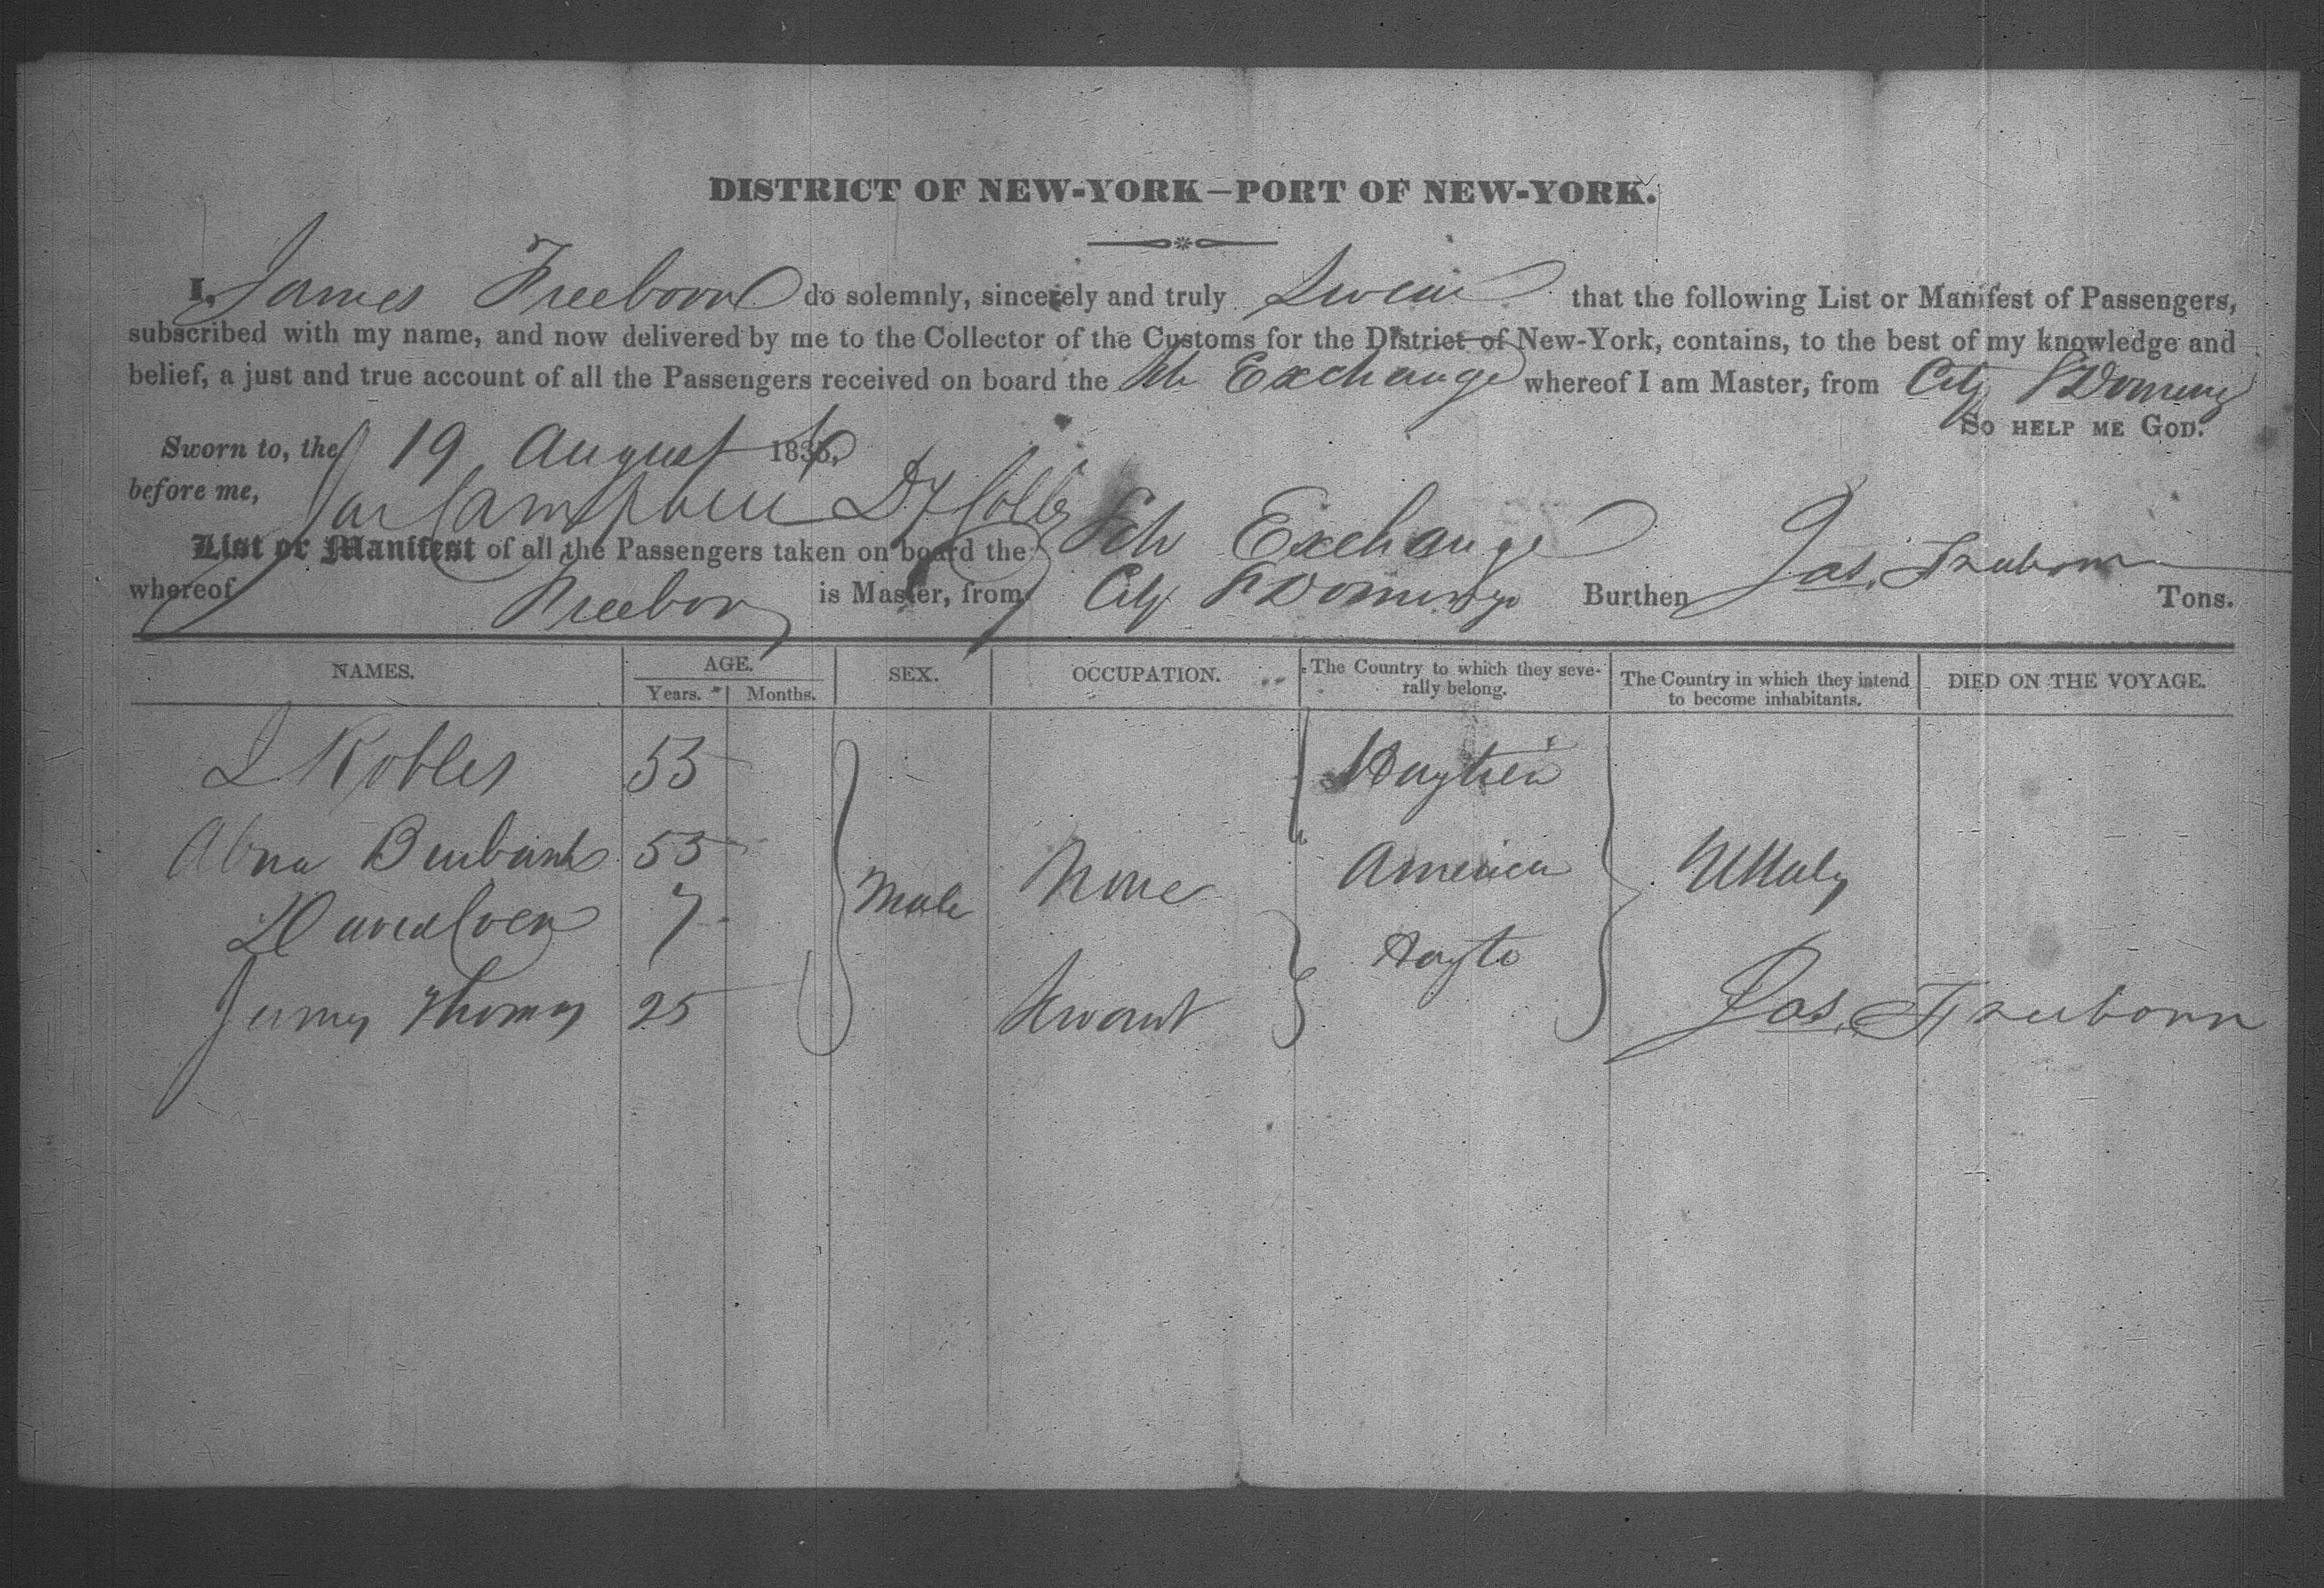 DISTRICT OF NEW-YORK—PORT OF NEW-YORK.
I, James Freeborn do solemnly, sincerely and truly Swear that the following List or Manifest of Passengers,
subscribed with my name, and now delivered by me to the Collector of the Customs for the District of New-York, contains, to the best of my knowledge and
belief, a just and true account of all the Passengers received on board the Sch Exchange whereof I am Master, from City St Domingo
So help me God.
Sworn to, the 19 August 1836,
before me, Campbell Dy Collr
List or Manifest of all the Passengers taken on board the Sch Exchange
whereof Freeborn is Master, from City St Domingo Burthen Jas. Freeborn Tons.
NAMES. AGE. SEX. OCCUPATION. The Country to which they seve- The Country in which they intend DIED ON THE VOYAGE.
Years. Months. rally belong. to become inhabitants.
Robles 53 Haytien
Burbank 55 America
Male None UStates
David 7 Hayti
Thomas 25 Servant Jas. Freeborn